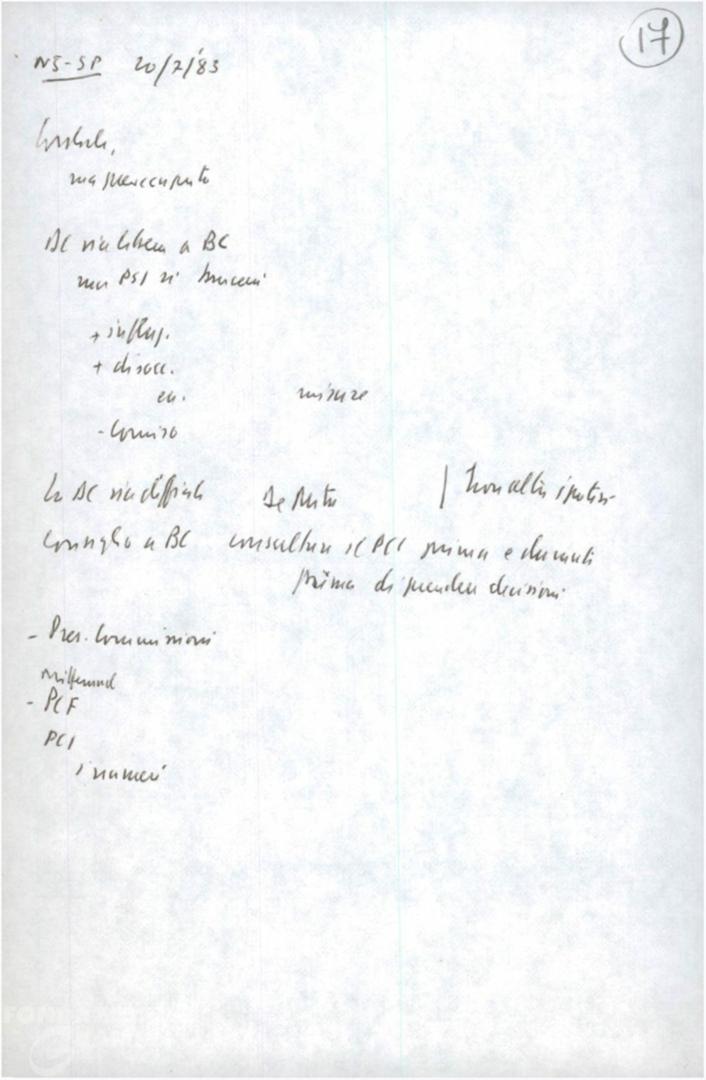 17
NS-SP 20/7/83
Cordiale,
ma preoccupato
DC via libera a BC
ma PSI si bruceri
+ inflaz.
+ disocc.
eu. misure
- Comiso
la DC via difficile De Mita | Non altri ipotesi
Consiglio a BC consultare il PCI prima e durante
prima di prendere decisioni
- Pres. Commissioni
Mitterrand
- PCF
PCI
i numeri